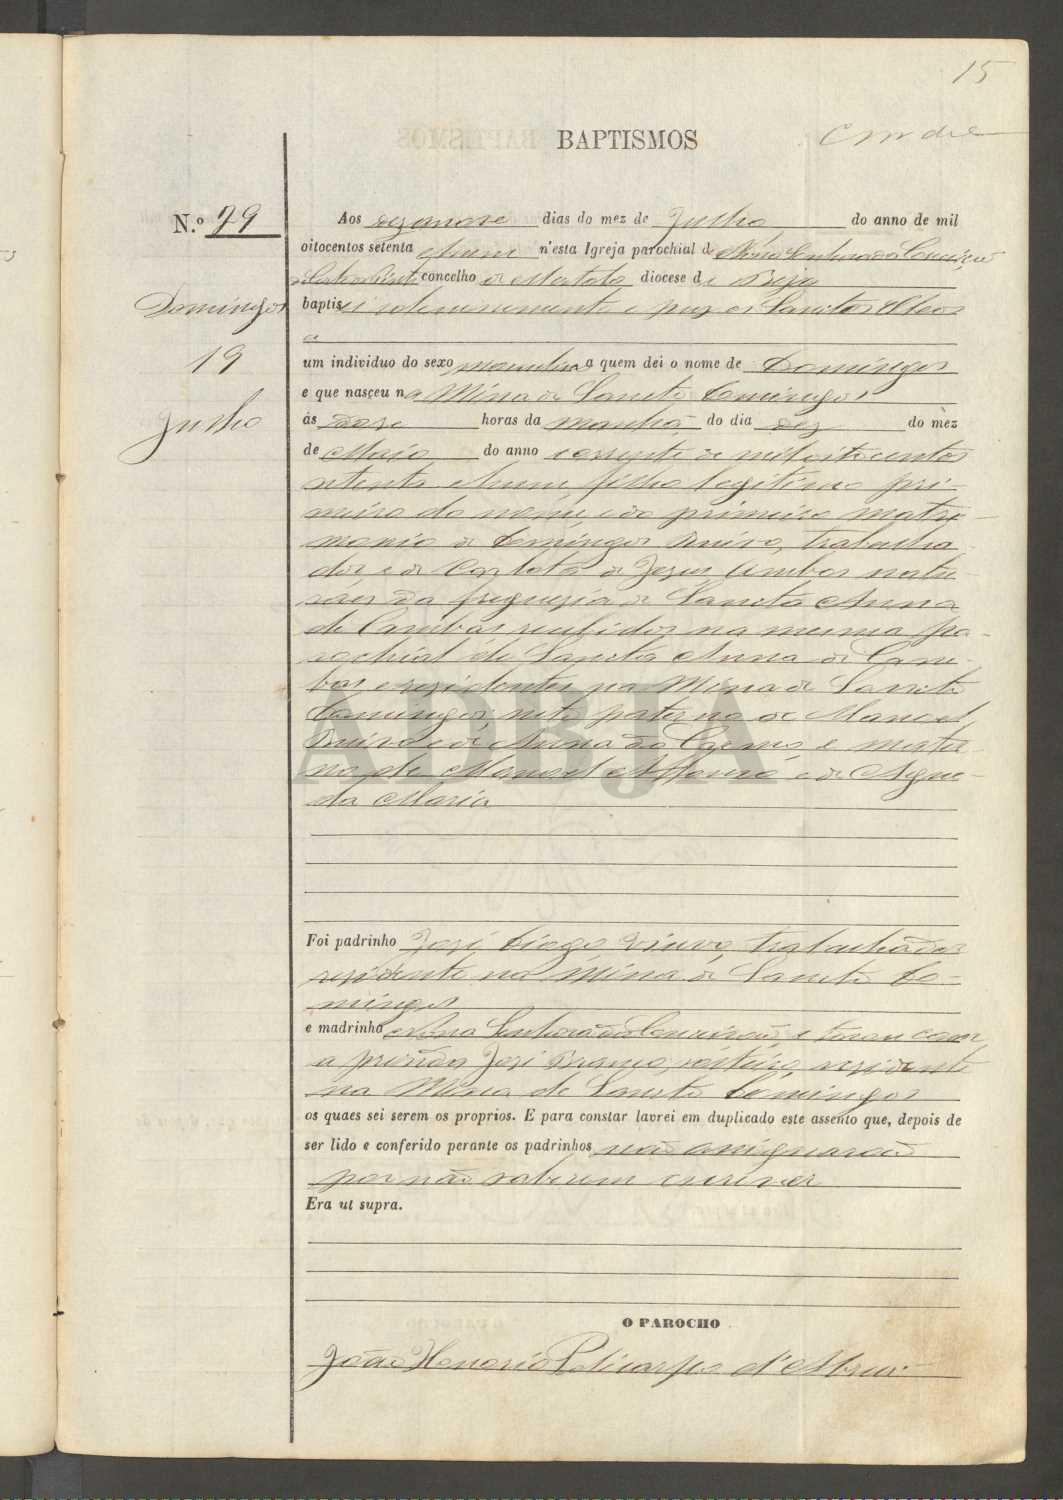 15
BAPTISMOS
N.º 79
Aos dezanove dias do mez de Julho do anno de mil
oitocentos setenta e hum n'esta Igreja parochial de Nossa Senhora da Conceição
concelho de Mertola diocese de Beja
Domingos
baptisei solemnemente e puz os Sanctos Oleos
a
19
um individuo do sexo masculino a quem dei o nome de Domingos
e que nasceu na Mina de Sancto Domingos
Julho
ás doze horas da manhã do dia dez do mez
de Maio do anno corrente de mil oitocentos
setenta e hum filho legitimo pri-
meiro do nome e do primeiro matri-
monio de Domingos Ruivo, trabalha-
dor e de Carlota de Jezus ambos natu-
raes da freguezia de Sancta Anna
de Cambas recebidos na mesma pa-
rochial de Sancta Anna de Cam-
bas e rezidentes na Mina de Sancto
Domingos, neto paterno de Manoel
Ruivo e de Anna do Carmo e mater-
no de Manoel Affonso e de Ague-
da Maria
Foi padrinho José Diogo viuvo, trabalhador
rezidente na Mina de Sancto Do-
mingos
e madrinha Nossa Senhora da Conceição, e tocou com
a prenda José rezidente
na Mina de Sancto Domingos
os quaes sei serem os proprios. E para constar lavrei em duplicado este assento que, depois de
ser lido e conferido perante os padrinhos não assignarão
por não saberem escrever
Era ut supra.
O PAROCHO
João Honorio Policarpo d'Abreu
ADBJA